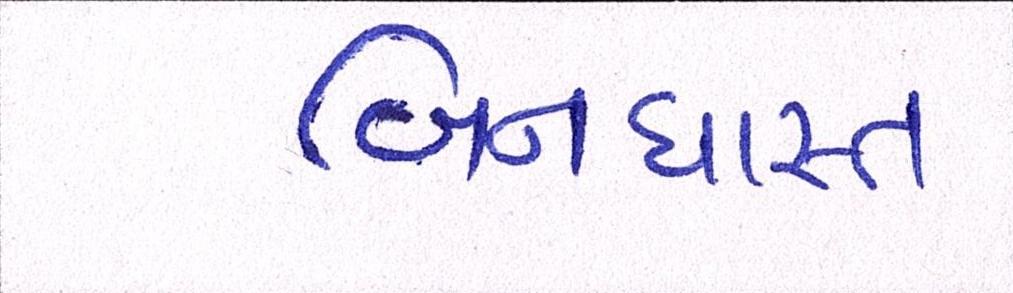 બિનધાસ્ત